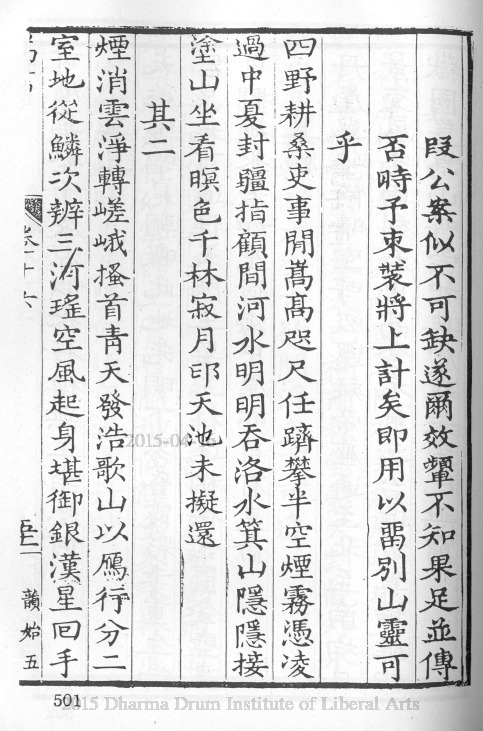 叚公案似不可缺遂爾效顰不知果足並傳
否時予束裝將上計矣即用以畱別山靈可
乎
四野耕桑吏事閒嵩高咫尺任躋攀半空煙霧憑凌
過中夏封疆指顧間河水明明吞洛水箕山隱隱接
塗山坐看暝色千林寂月印天池未擬還
其二
煙消雲淨轉嵯峨搔首青天發浩歌山以鴈行分二
室地從鱗次辨三河瑤空風起身堪御銀漢星回手
卷十六
韻始五
2015-04
501
2015 Dharma Drum Institute of Liberal Arts